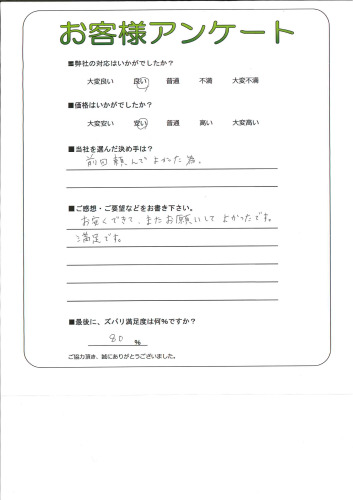 お客様アンケート
■弊社の対応はいかがでしたか？
大変良い 良い 普通 不満 大変不満
■価格はいかがでしたか？
大変安い 安い 普通 高い 大変高い
■当社を選んだ決め手は？
前回頼んでよかった為。
■ご感想・ご要望などをお書き下さい。
お安くできて、またお願いして よかったです。
満足です。
■最後に、ズバリ満足度は何%ですか？
80 %
ご協力頂き、誠にありがとうございました。